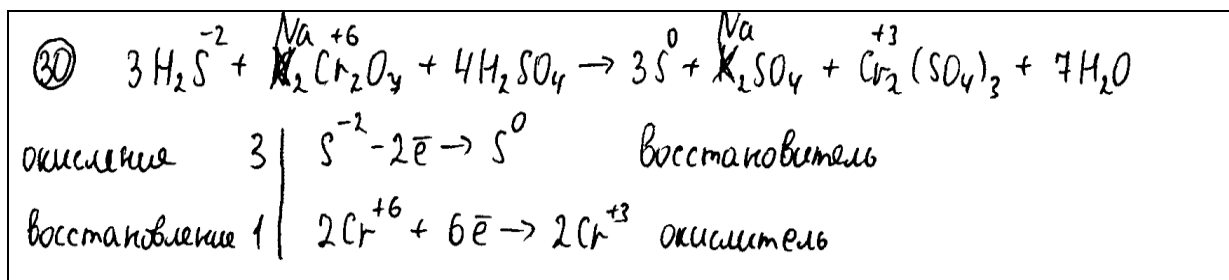 30 3H₂S⁻² + Na₂Cr₂⁺⁶O₇ + 4H₂SO₄ → 3S⁰ + Na₂SO₄ + Cr₂⁺³(SO₄)₃ + 7H₂O
окисления 3 | S⁻² - 2ē → S⁰ восстановитель
восстановление 1 | 2Cr⁺⁶ + 6ē → 2Cr⁺³ окислитель